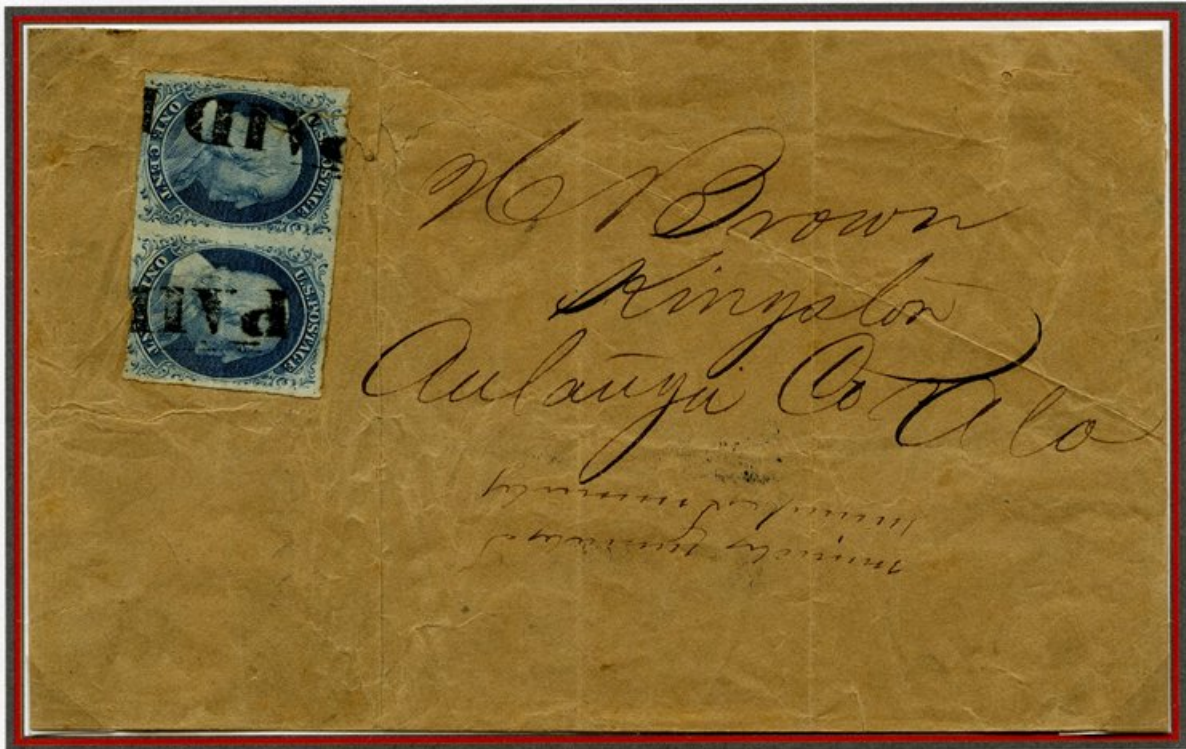 U.S. POSTAGE
ONE CENT
PAID
U.S. POSTAGE
ONE CENT
PAID
N Brown
Kingston
Autauga Co Ala